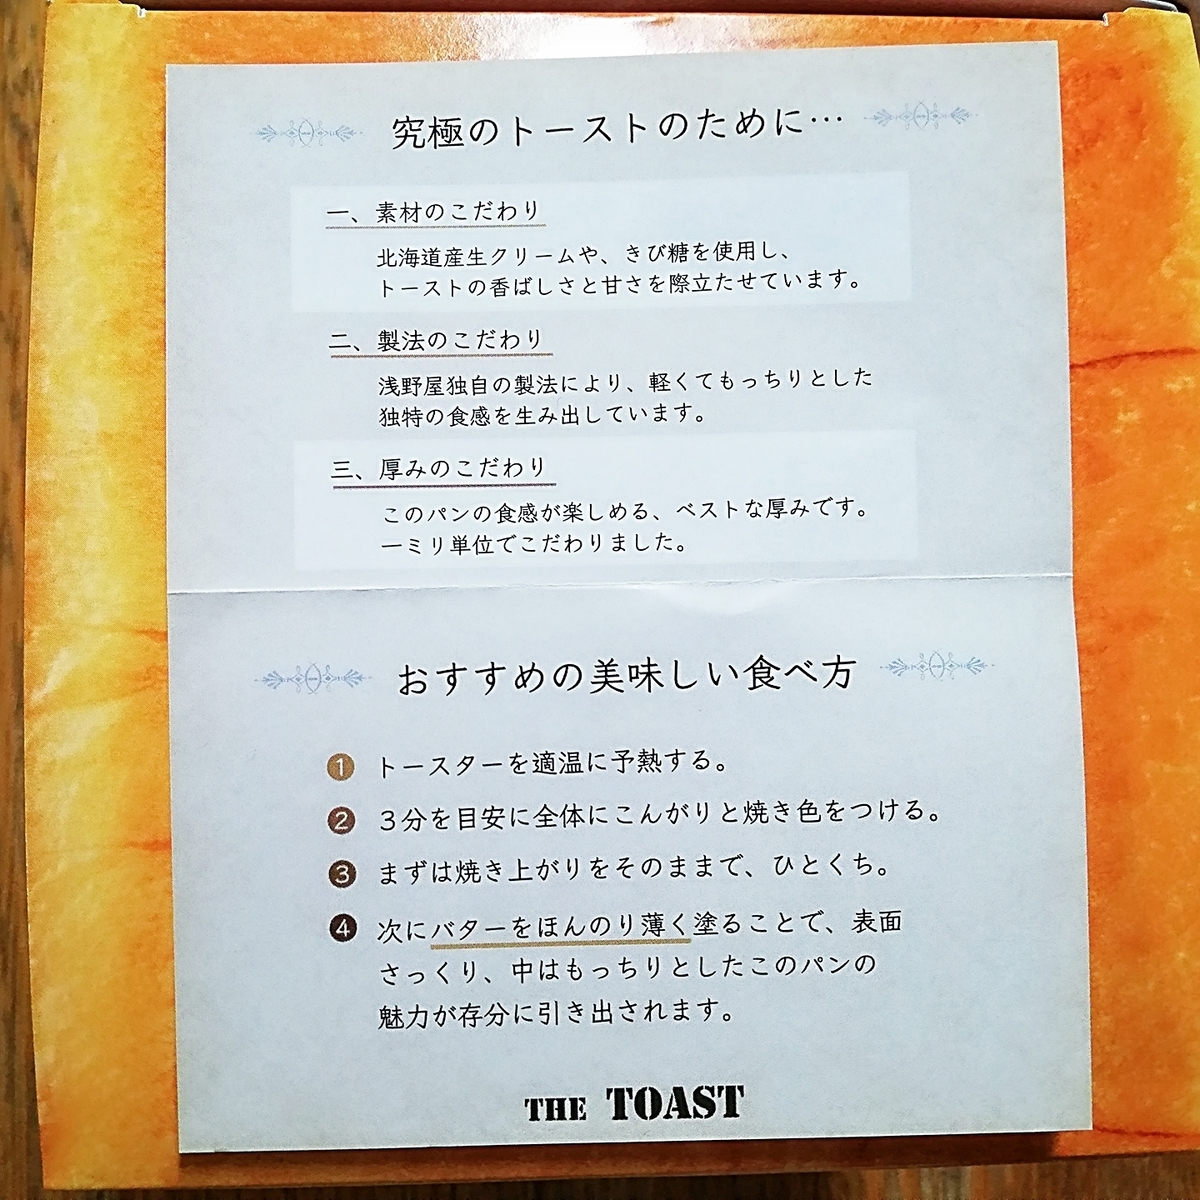 究極のトーストのために…
一、素材のこだわり
北海道産生クリームや、きび糖を使用し、
トーストの香ばしさと甘さを際立たせています。
二、製法のこだわり
浅野屋独自の製法により、軽くてもっちりとした
独特の食感を生み出しています。
三、厚みのこだわり
このパンの食感が楽しめる、ベストな厚みです。
一ミリ単位でこだわりました。
おすすめの美味しい食べ方
1 トースターを適温に予熱する。
2 3分を目安に全体にこんがりと焼き色をつける。
3 まずは焼き上がりをそのままで、ひとくち。
4 次にバターをほんのり薄く塗ることで、表面
さっくり、中はもっちりとしたこのパンの
魅力が存分に引き出されます。
THE TOAST